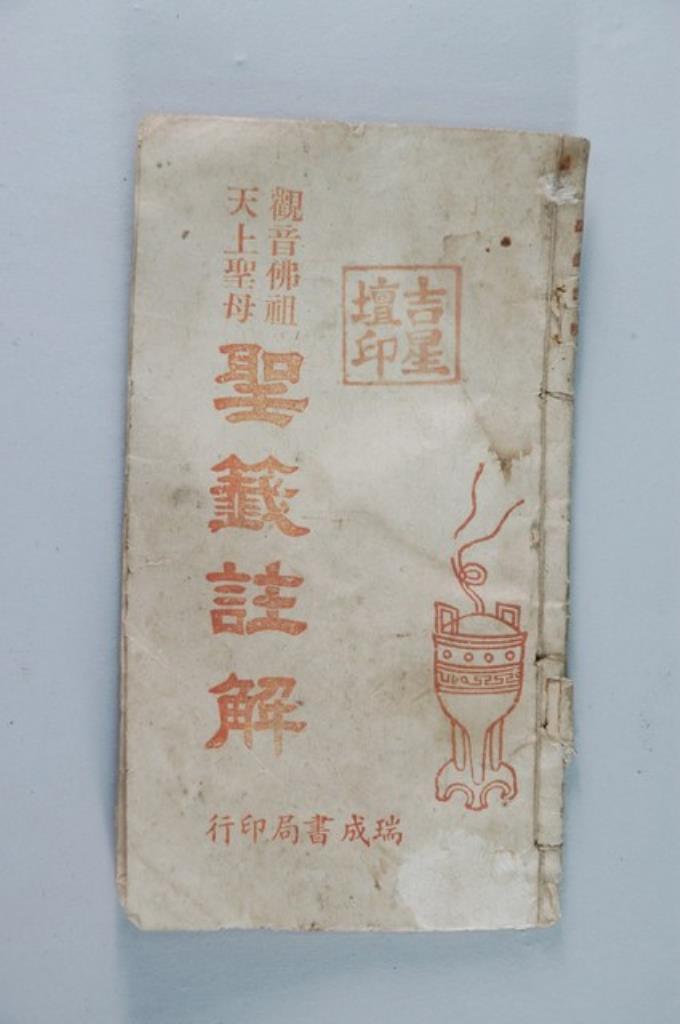 吉星
壇印
觀音佛祖
天上聖母
聖籤註解
瑞成書局印行